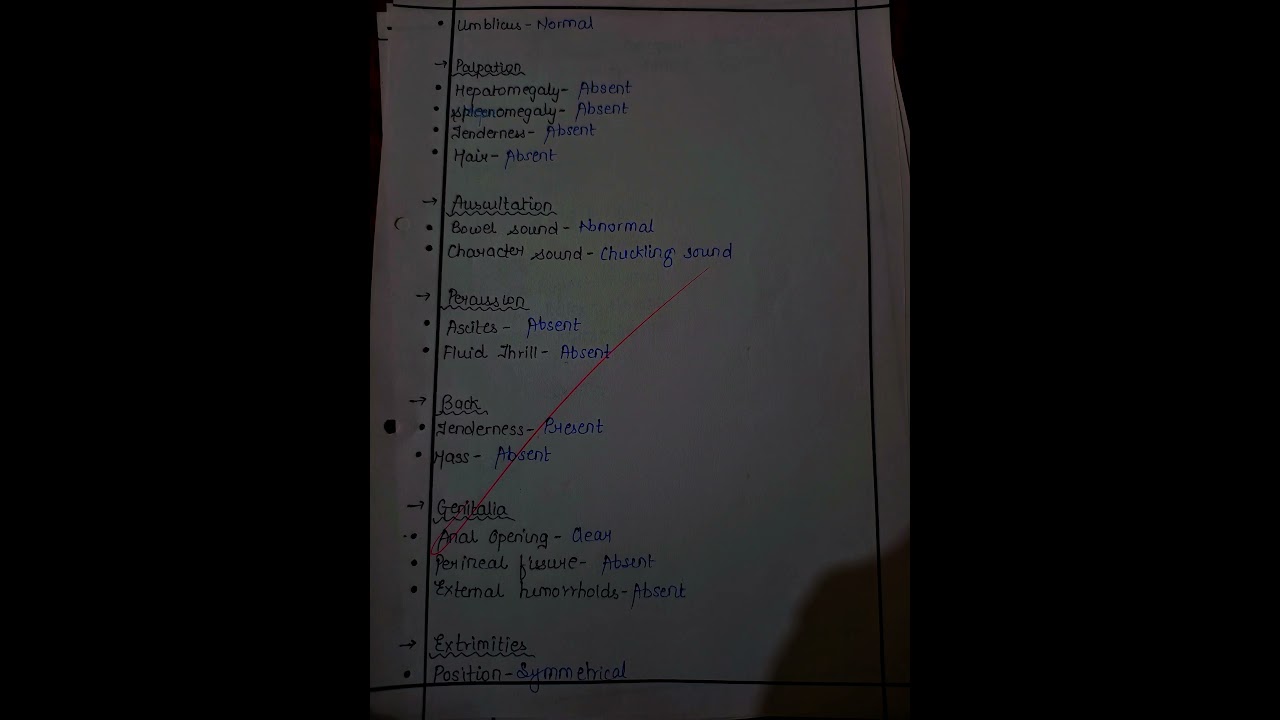 • Umblicus - Normal
→ Palpation
• Hepatomegaly - Absent
• spleenomegaly - Absent
• Tenderness - Absent
• Hair - Absent
→ Auscultation
• Bowel sound - Abnormal
• Character sound - Chuckling sound
→ Percussion
• Ascites - Absent
• Fluid Thrill - Absent
→ Back
• Tenderness - Present
• Mass - Absent
→ Genitalia
• Anal Opening - Clear
• Perineal fisure - Absent
• External hemorrholds - Absent
→ Extrimities
• Position - Symmetrical